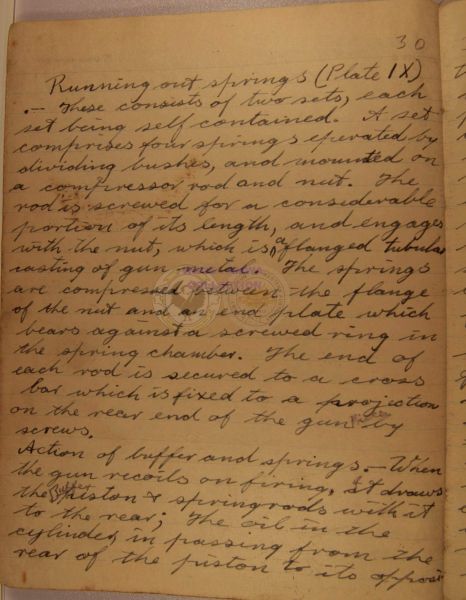 30
Running out springs (Plate IX)
.- These consists of two sets, each
set being self contained. A set
comprises four springs eperated by
dividing bushes, and mounted on
a compressor rod and nut. The
rod is screwed for a considerable
portion of its length, and engages
with the nut, which is a flanged tubular
casting of gun metal. The springs
are compressed between the flange
of the nut and an end plate which
bears against a screwed ring in
the spring chamber. The end of
each rod is secured to a cross
bar which is fixed to a projection
on the rear end of the gun by
screws.
Action of buffer and springs.- When
the gun recoils on firing, it draws
the Buffer piston & spring rods with it
to the rear; The oil in the
cylinder, in passing from the
rear of the piston to its opposi